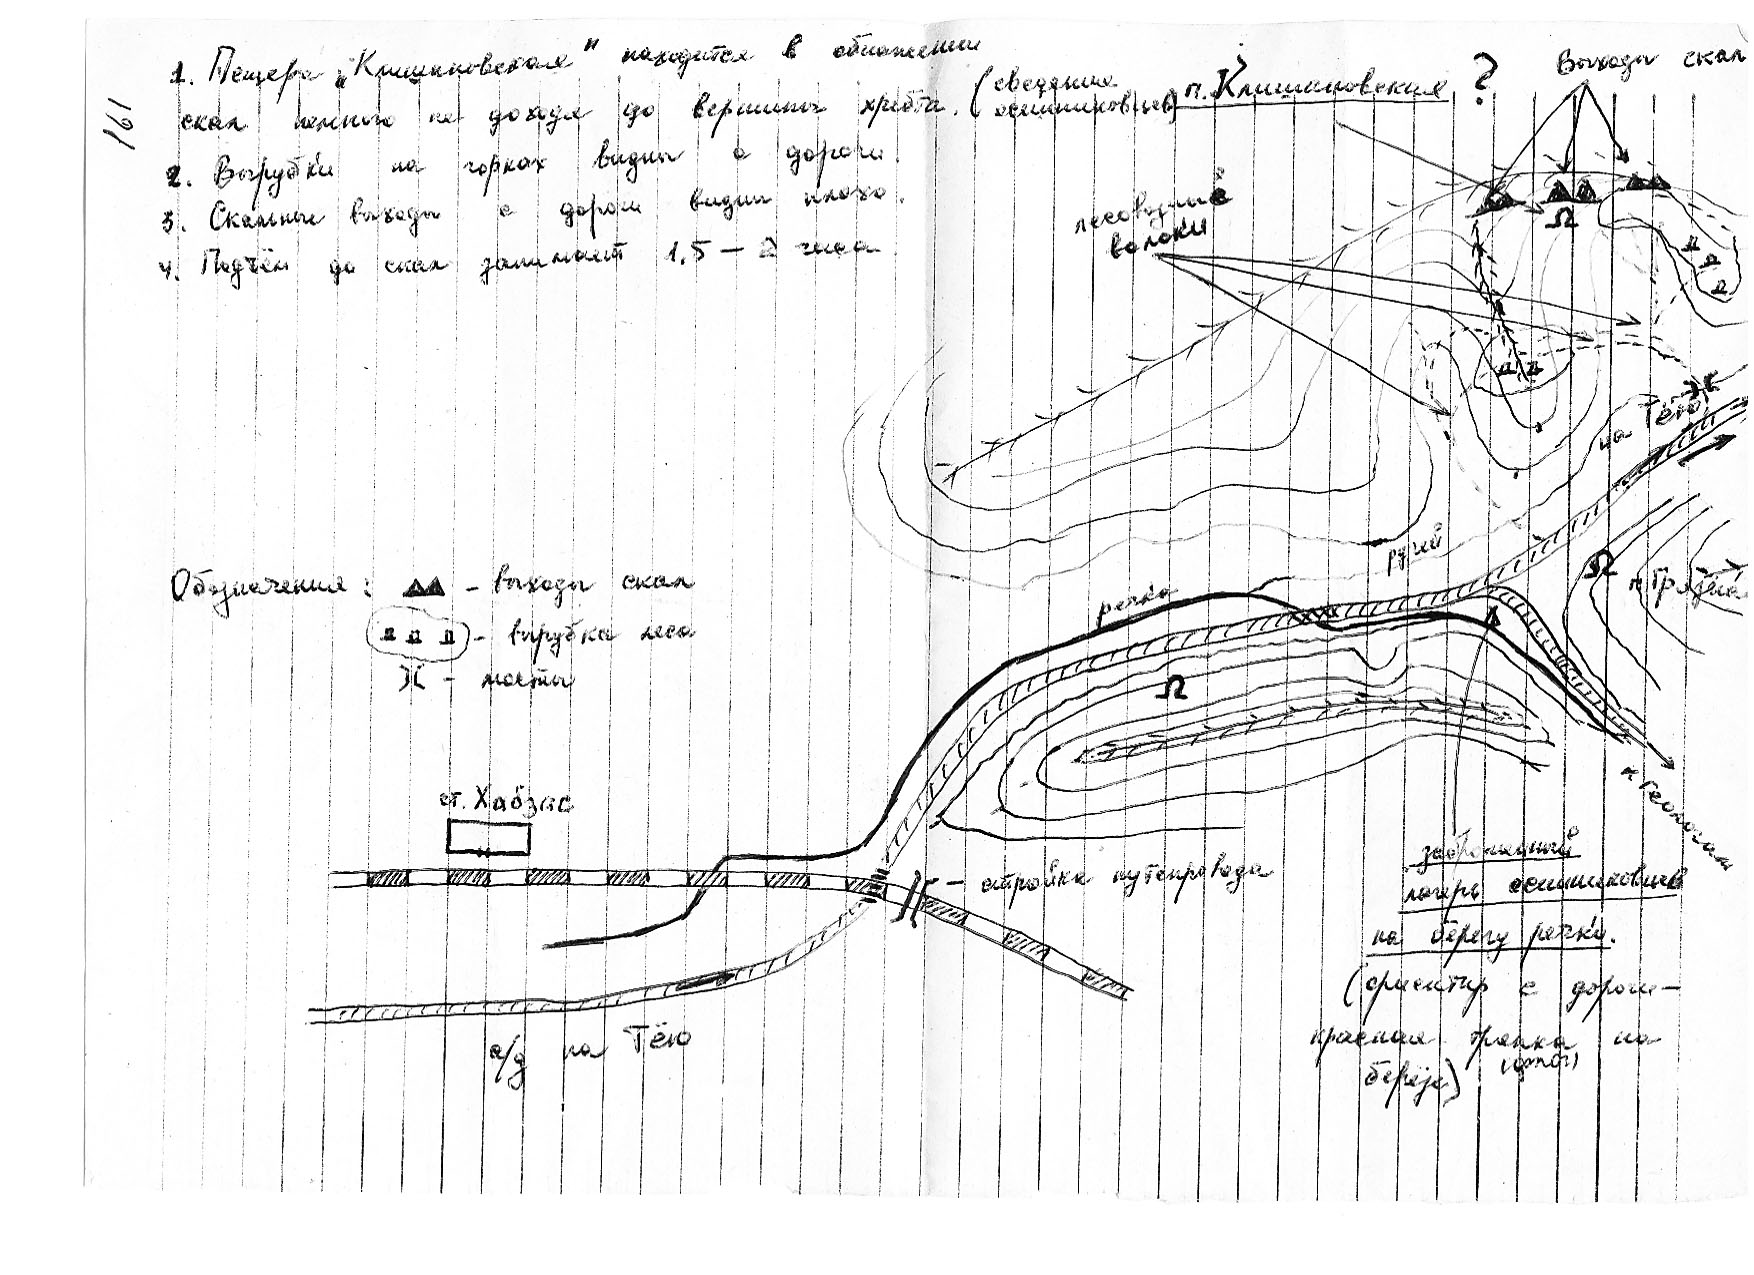 161
1. Пещера „Клишановская" находится в обнажении
скал немного не доходя до вершины хребта. (сведения
осинниковцев)
2. Вырубки на горках видны с дороги.
3. Скальные выходы с дороги видны плохо.
4. Подъём до скал занимает 1,5 – 2 часа
п. Клишановская ?
Выходы скал
лесовозные
волоки
на Тёю
ручей
речка
п. Грязная
к Геологам
Обозначения:
- выходы скал
- вырубка леса
- мосты
ст. Хабзас
- стройка путепровода
а/д на Тёю
заброшенный
лагерь осинниковцев
на берегу речки.
(ориентир с дороги –
красная тряпка на
берегу)